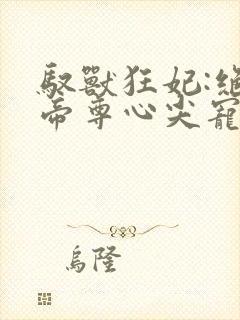 馭獸狂妃:絕
帝尊心尖寵
烏隆